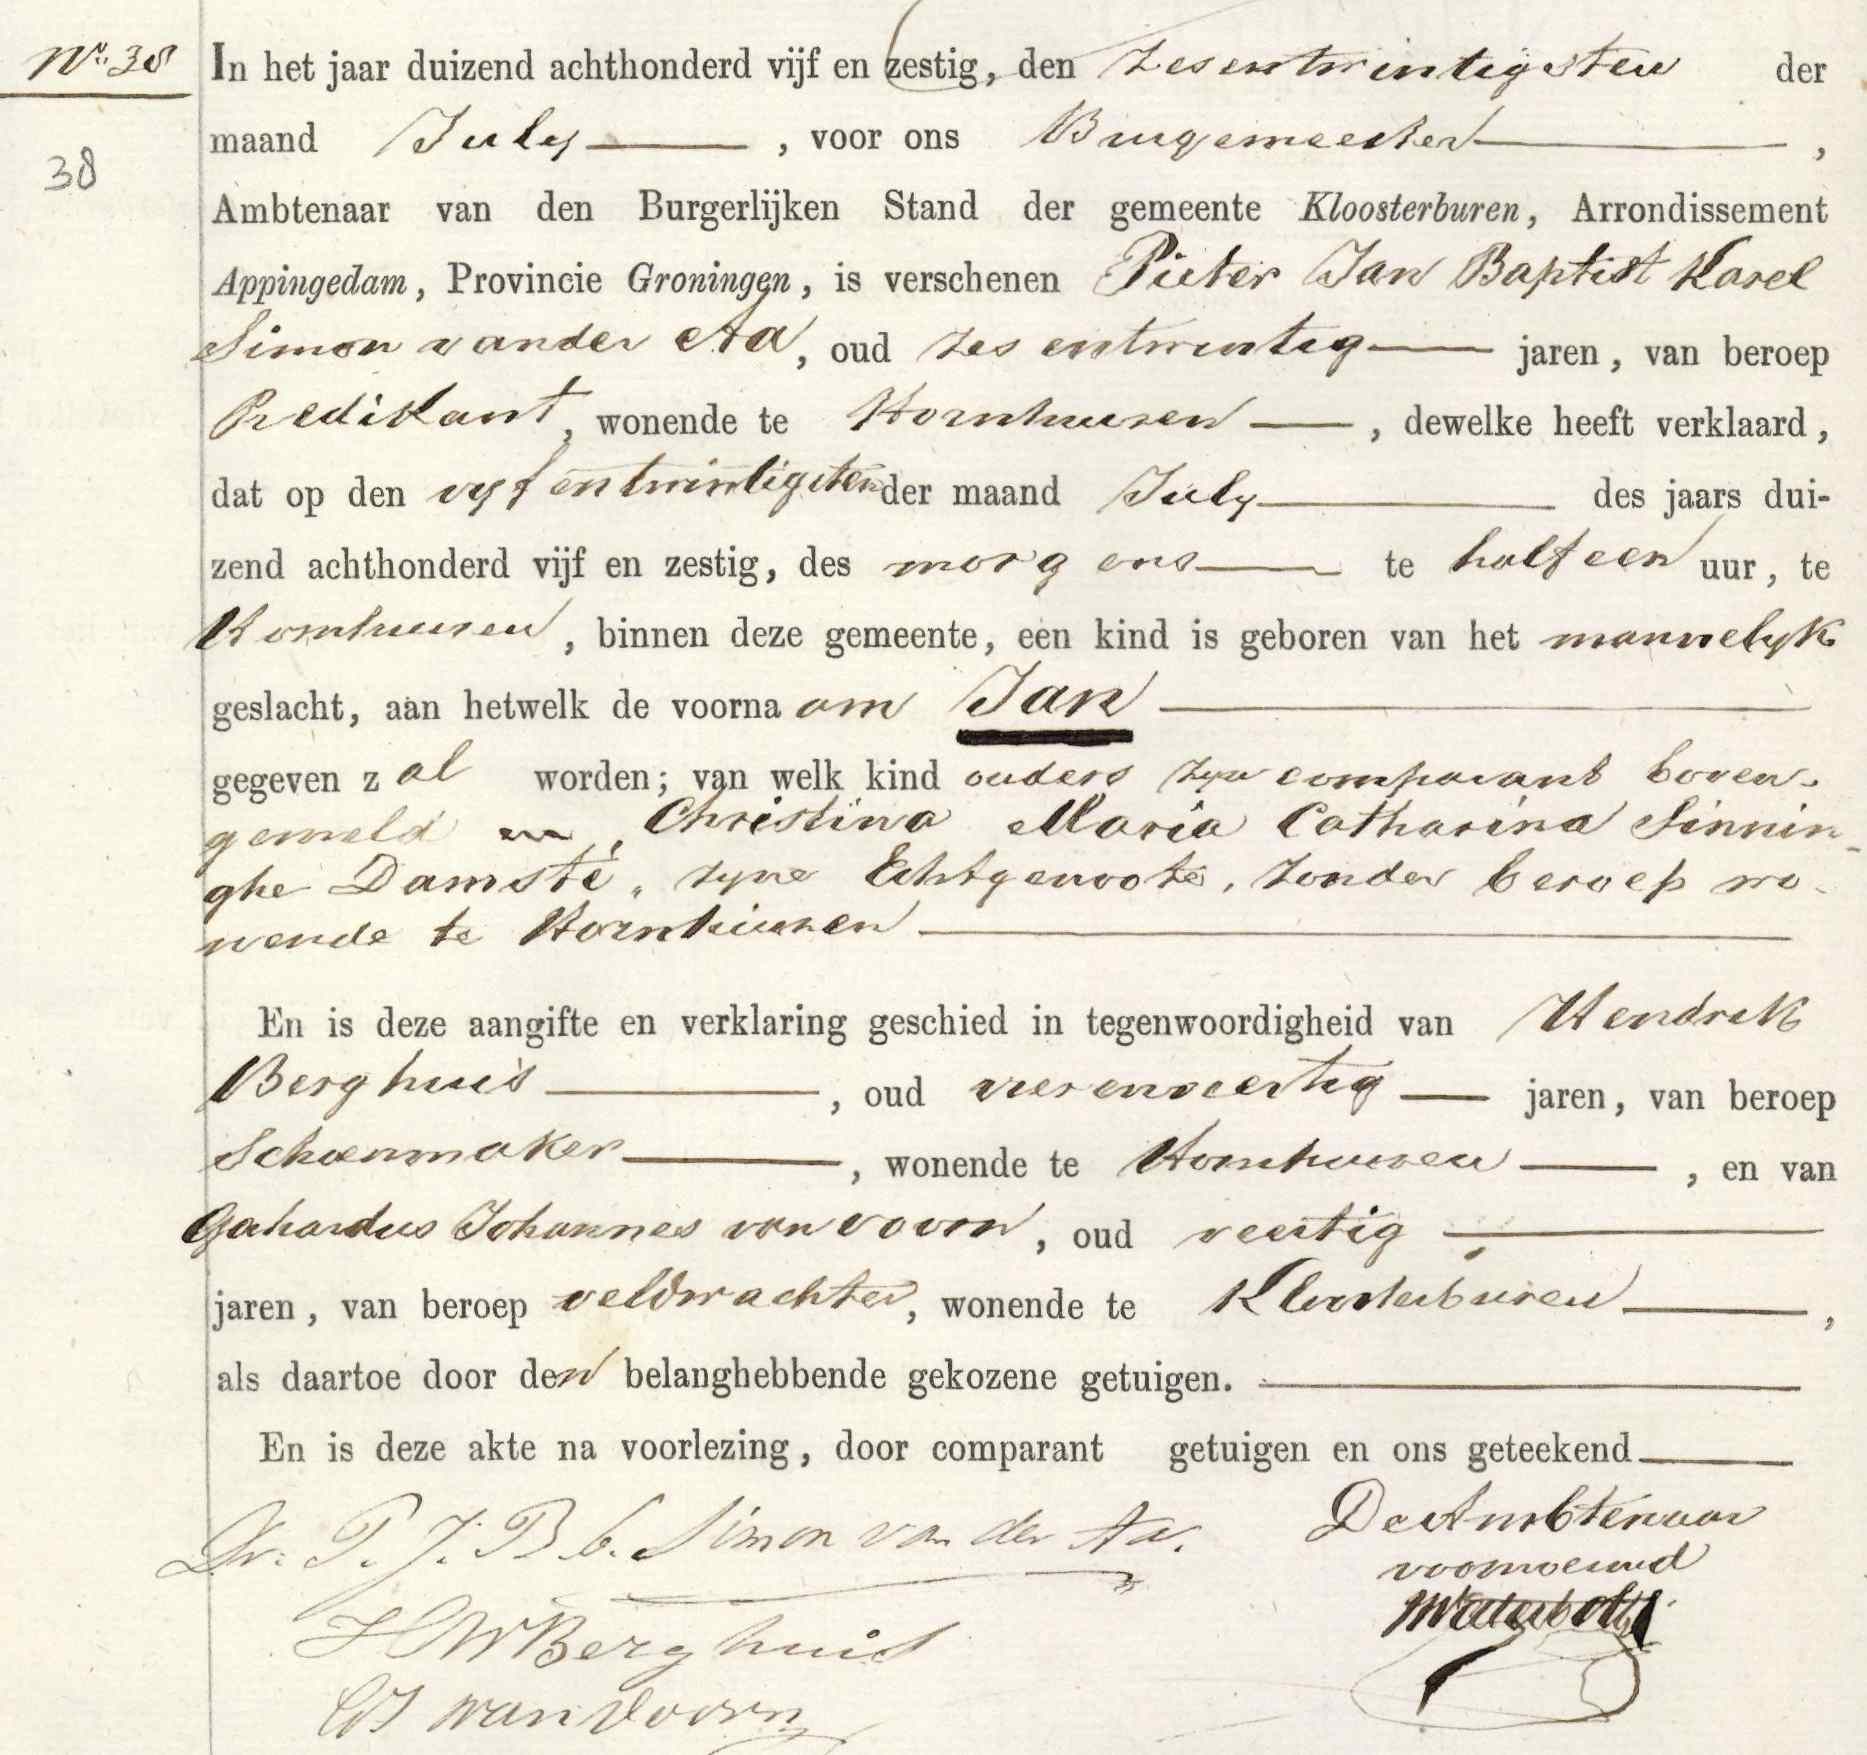 No. 38
In het jaar duizend achthonderd vijf en zestig, den zesentwintigsten der
maand July , voor ons Burgemeester ,
38
Ambtenaar van den Burgerlijken Stand der gemeente Kloosterburen, Arrondissement
Appingedam, Provincie Groningen, is verschenen Pieter Jan Baptist Karel
Simon van der Aa, oud zes entwintig jaren, van beroep
Predikant, wonende te Hornhuizen , dewelke heeft verklaard,
dat op den vyf entwintigsten der maand July des jaars dui-
zend achthonderd vijf en zestig, des morgens te half een uur, te
Hornhuizen, binnen deze gemeente, een kind is geboren van het mannelyk
geslacht, aan hetwelk de voorna am Jan
gegeven z al worden; van welk kind ouders zyn comparant boven-
gemeld en, Christina Maria Catharina Sinnin-
ghe Damsté, zyne Echtgenoote, zonder beroep wo-
nende te Hornhuizen
En is deze aangifte en verklaring geschied in tegenwoordigheid van Hendrik
Berghuis , oud vierenveertig jaren, van beroep
Schoenmaker , wonende te Hornhuizen , en van
Gerhardus Johannes van Voorn, oud veertig
jaren, van beroep veldwachter, wonende te Kloosterburen ,
als daartoe door den belanghebbende gekozene getuigen.
En is deze akte na voorlezing, door comparant getuigen en ons geteekend
Dr. P. J. B. C. Simon van der Aa.
De Ambtenaar
voornoemd
Berghuis
GJ van Voorn